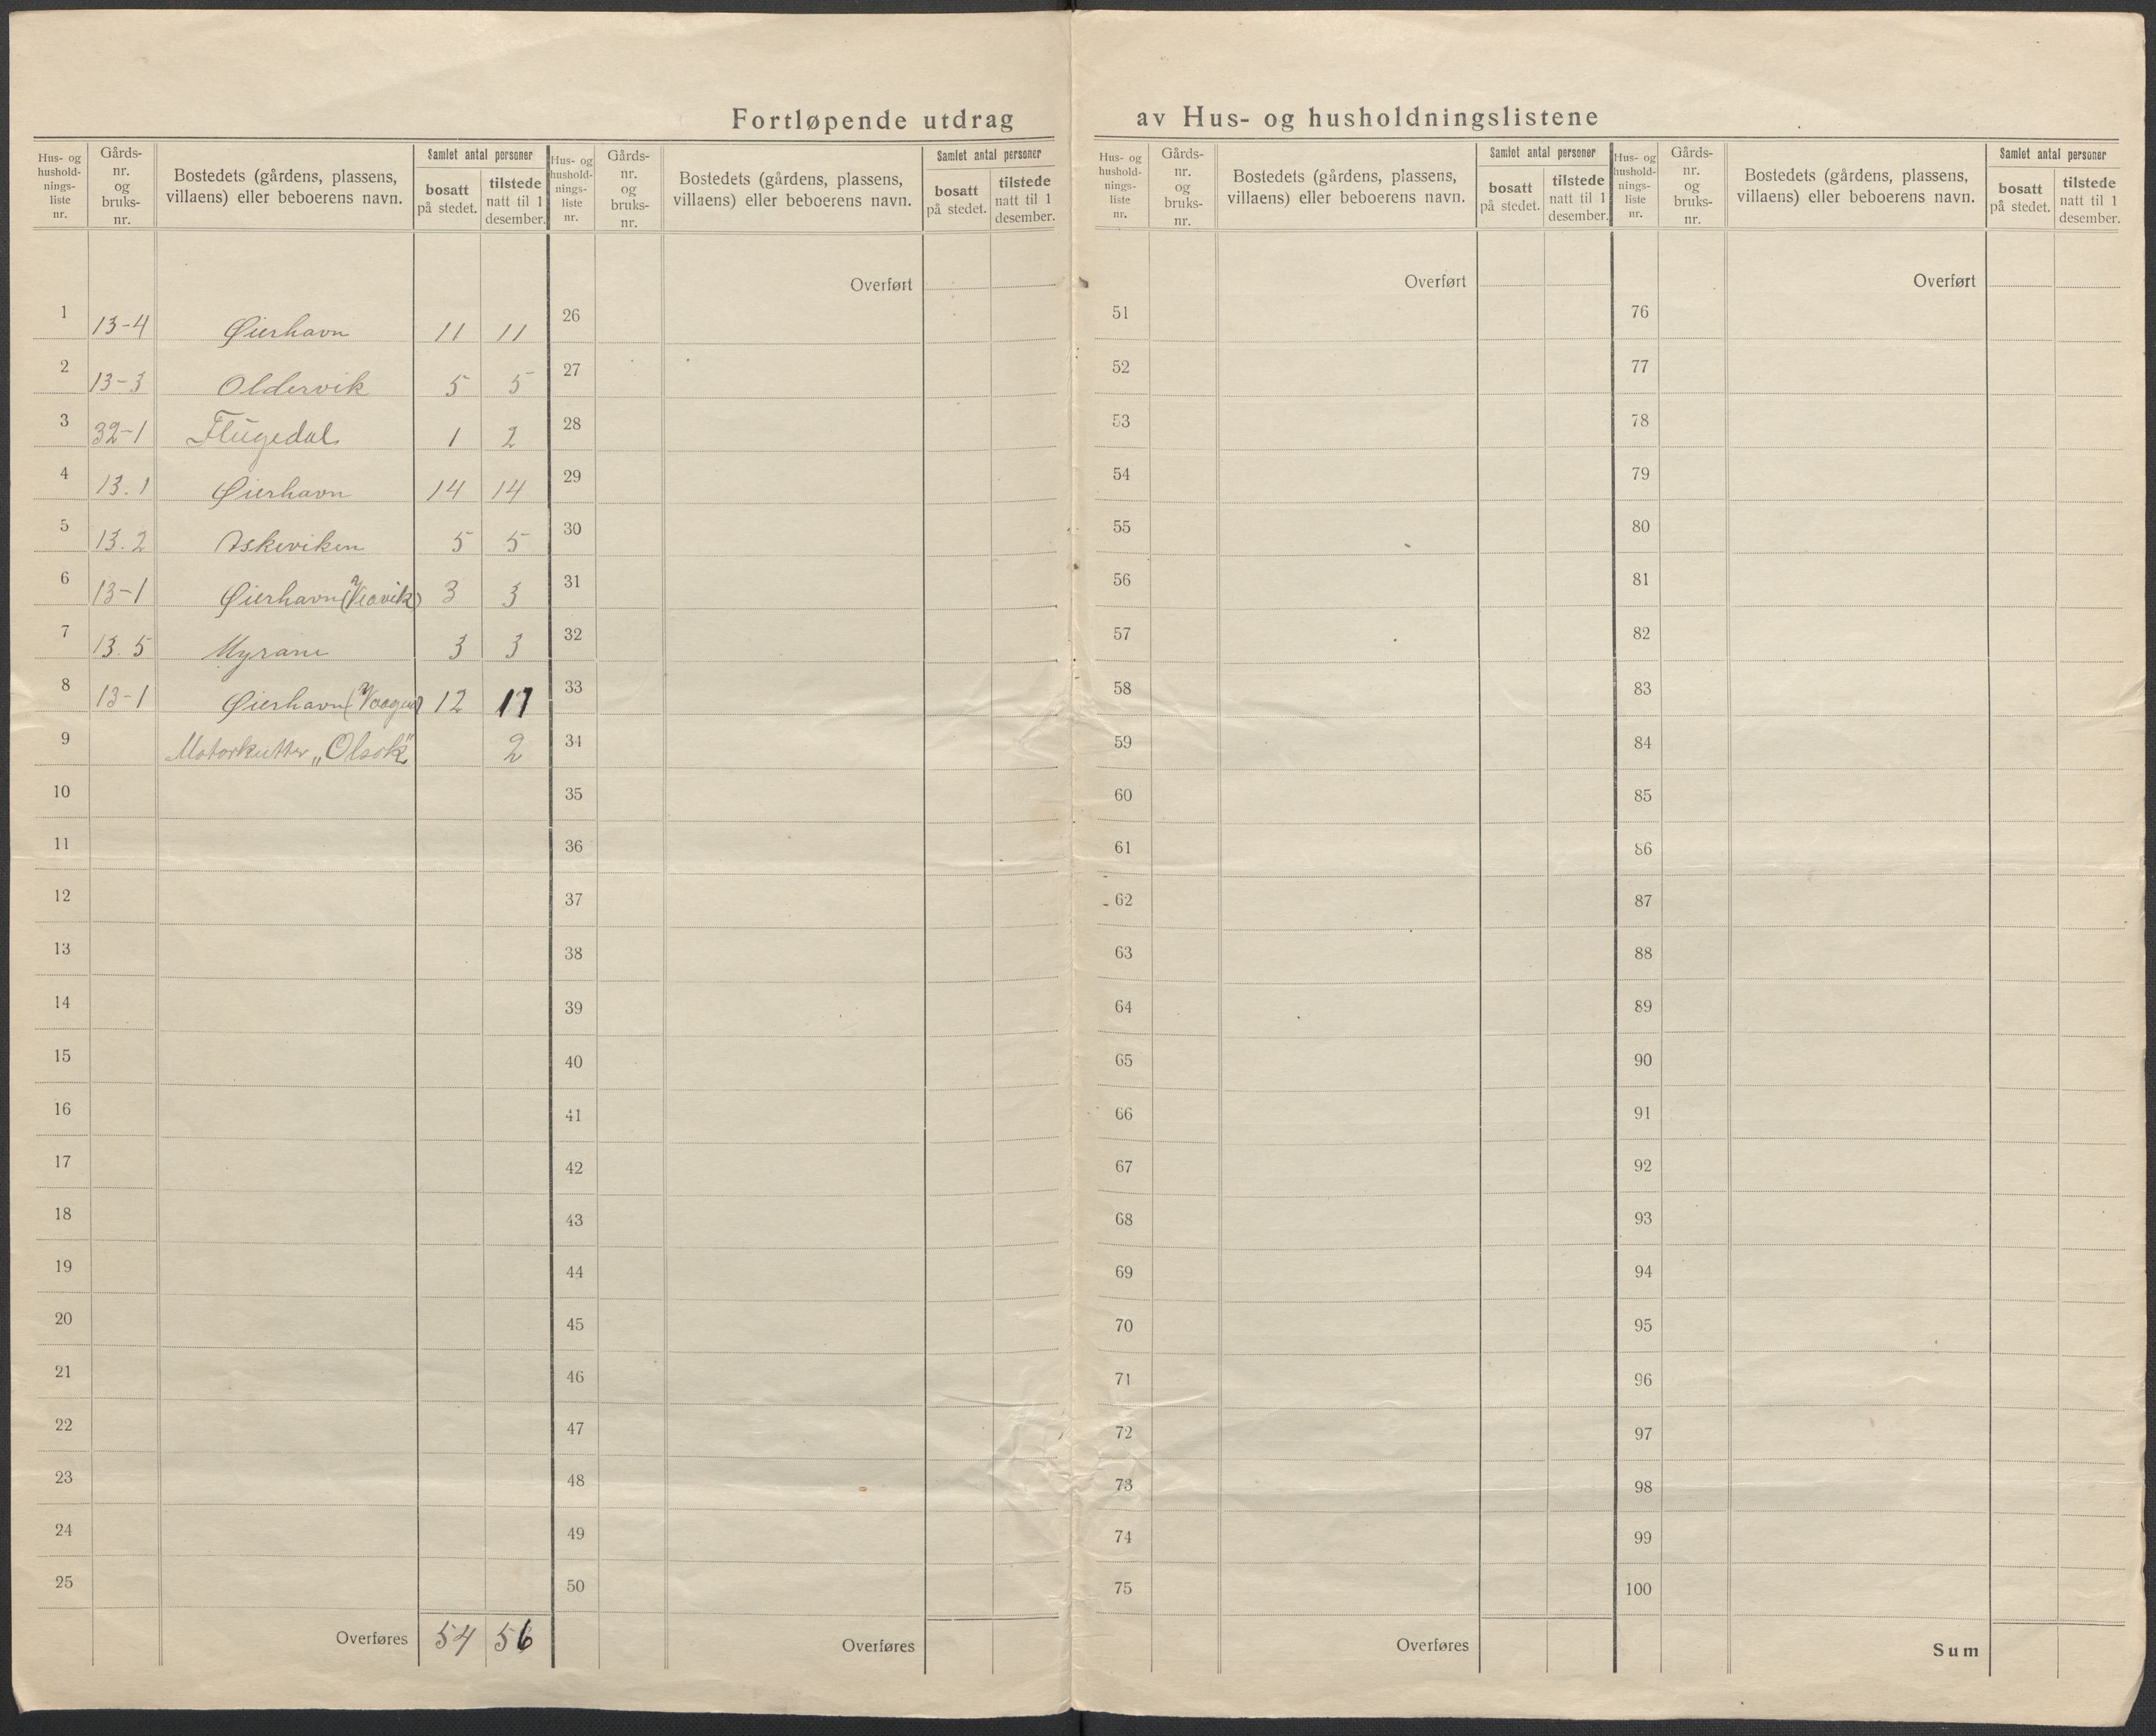 Fortløpende utdrag av Hus- og husholdningslistene
Hus- og hushold-nings-liste nr. Gårds-nr. og bruks-nr. Bostedets (gårdens, plassens, villaens) eller beboerens navn. Samlet antal personer bosatt på stedet. tilstede natt til 1 desember.
1 13-4 Øierhavn 11 11
2 13-3 Oldervik 5 5
3 32-1 Flugedal 1 2
4 13.1 Øierhavn 14 14
5 13.2 Askeviken 5 5
6 13-1 Øierhavn (Veavik) 3 3
7 13.5 Myrane 3 3
8 13-1 Øierhavn 12 11
9 Motorkutter „Olsok" 2
10
11
12
13
14
15
16
17
18
19
20
21
22
23
24
25
Overføres 54 56
Hus- og hushold-nings-liste nr. Gårds-nr. og bruks-nr. Bostedets (gårdens, plassens, villaens) eller beboerens navn. Samlet antal personer bosatt på stedet. tilstede natt til 1 desember.
Overført
26
27
28
29
30
31
32
33
34
35
36
37
38
39
40
41
42
43
44
45
46
47
48
49
50
Overføres
Hus- og hushold-nings-liste nr. Gårds-nr. og bruks-nr. Bostedets (gårdens, plassens, villaens) eller beboerens navn. Samlet antal personer bosatt på stedet. tilstede natt til 1 desember.
Overført
51
52
53
54
55
56
57
58
59
60
61
62
63
64
65
66
67
68
69
70
71
72
73
74
75
Overføres
Hus- og hushold-nings-liste nr. Gårds-nr. og bruks-nr. Bostedets (gårdens, plassens, villaens) eller beboerens navn. Samlet antal personer bosatt på stedet. tilstede natt til 1 desember.
Overført
76
77
78
79
80
81
82
83
84
85
86
87
88
89
90
91
92
93
94
95
96
97
98
99
100
Sum